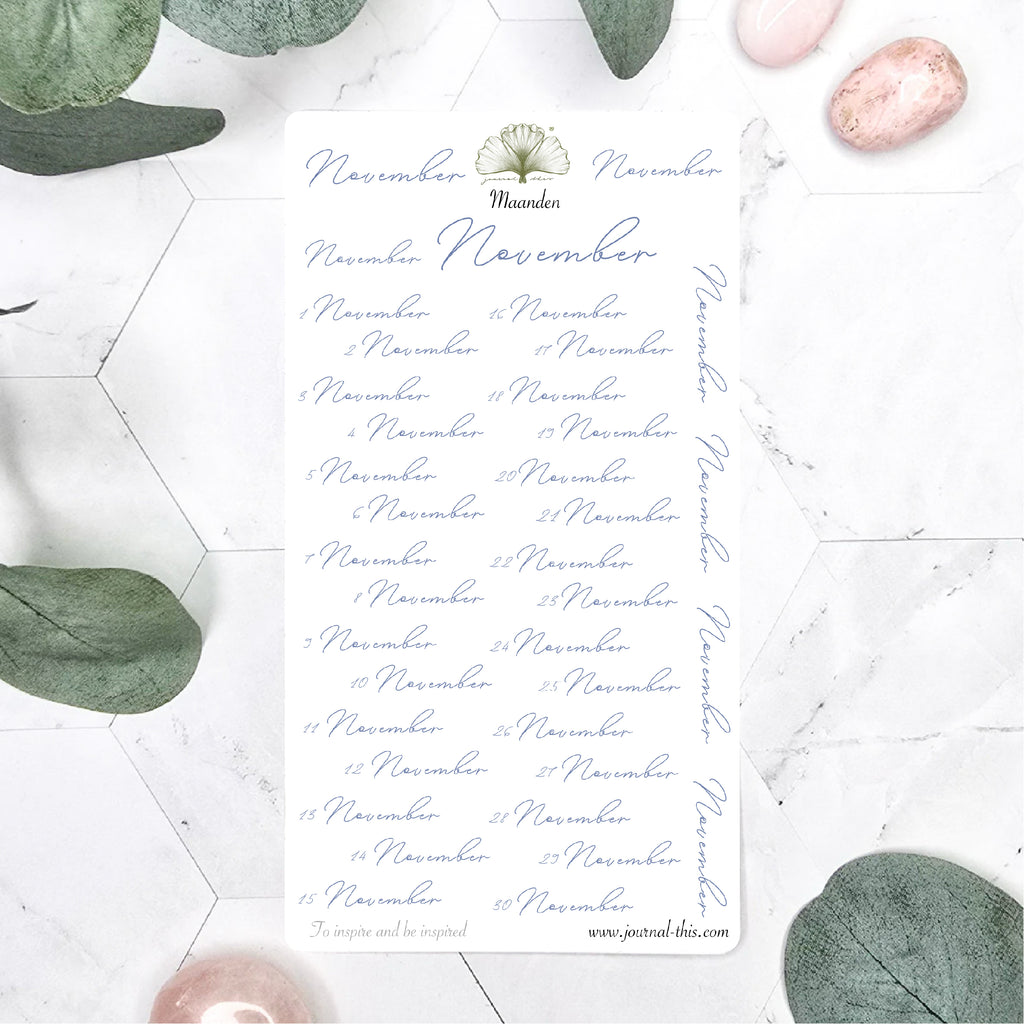 November
November
journal this
Maanden
November
November
1 November
2 November
3 November
4 November
5 November
6 November
7 November
8 November
9 November
10 November
11 November
12 November
13 November
14 November
15 November
16 November
17 November
18 November
19 November
20 November
21 November
22 November
23 November
24 November
25 November
26 November
27 November
28 November
29 November
30 November
November
November
November
November
To inspire and be inspired
www.journal-this.com